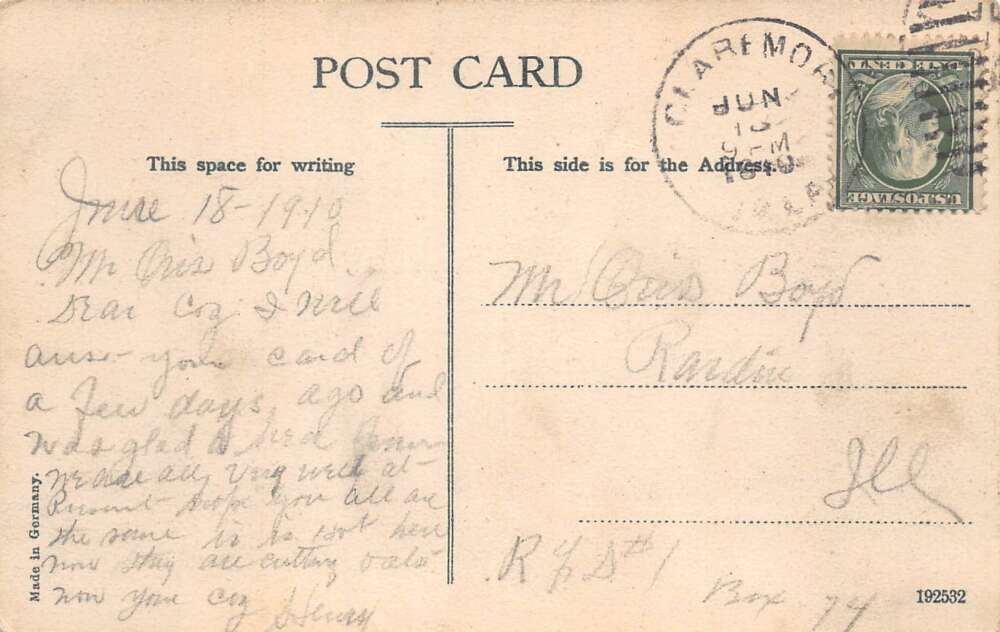 POST CARD
This space for writing
This side is for the Address.
CLAREMORE
JUN
9 PM
1910
OKLA
ONE CENT
U.S. POSTAGE
June 18-1910
Mr Oris Boyd
Dear Coz I will
anse your card of
a few days ago and
was glad to hed from
we are all very well at
Present hope you all are
the same is is Hot here
now they are cutting oats
now your coz
Henry
Mr Oris Boyd
Rardin
Ill
R F D #1
Box 74
Made in Germany.
192532